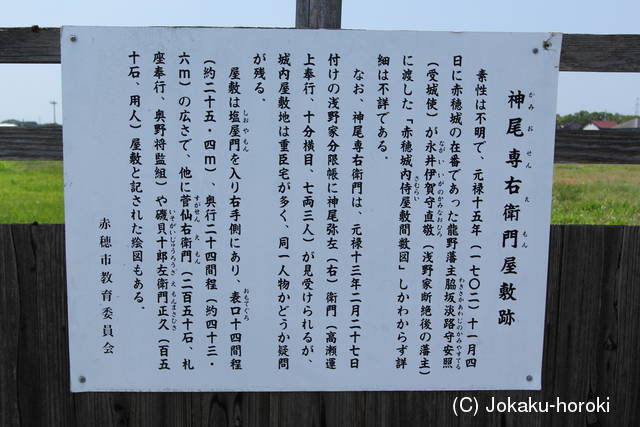 神尾専右衛門屋敷跡
かみ お せん え もん
素性は不明で、元禄十五年（一七〇二）十一月四
日に赤穂城の在番であった龍野藩主脇坂淡路守安照
わきさかあわじのかみやすてる
（受城使）が永井伊賀守直敬（浅野家断絶後の藩主）
ながい いがのかみなおひろ
に渡した「赤穂城内侍屋敷間数図」しかわからず詳
さむらい
細は不詳である。
なお、神尾専右衛門は、元禄十三年二月二十七日
付けの浅野家分限帳に神尾弥左（右）衛門（高瀬運
上奉行、十分横目、七両三人）が見受けられるが、
城内屋敷地は重臣宅が多く、同一人物かどうか疑問
が残る。
屋敷は塩屋門を入り右手側にあり、表口十四間程
しおやもん
おもてぐち
（約二十五・四ｍ）、奥行二十四間程（約四十三・
六ｍ）の広さで、他に菅仙右衛門（二百五十石、札
すがせん え もん
座奉行、奥野将監組）や磯貝十郎左衛門正久（百五
いそがいじゅうろうざえもんまさひさ
十石、用人）屋敷と記された絵図もある。
赤穂市教育委員会
(C) Jokaku-horoki